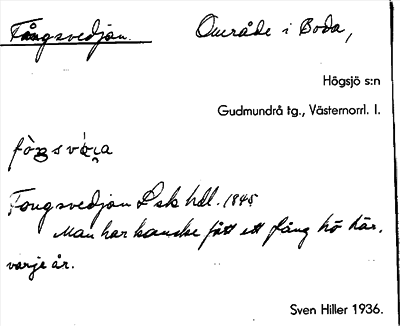 Fångsvedjan. Område i Boda,
Högsjö s:n
Gudmundrå tg., Västernorrl. l.
Fongsvedjan Lsk hdl. 1845
Man har kanske fått ett fång hö här,
varje år.
Sven Hiller 1936.